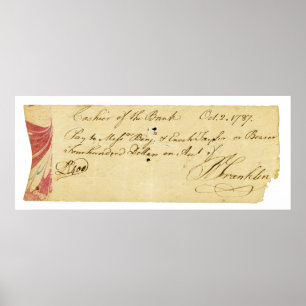 Cashier of the Bank Oct. 2. 1787.
Pay to Messrs. Benj. & Enoch Taylor or Bearer
Four hundred Dollars on Acct. of
B Franklin